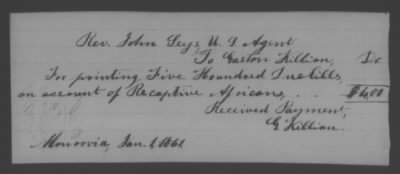 Rev. John Seys U. S Agent
To Gaston Killian, Dr.
For printing Five Houndred Duebills,
on account of Recaptive Africans, . . . $4.00
Received Payment,
G Killian.
Monrovia, Jan. 1 1861